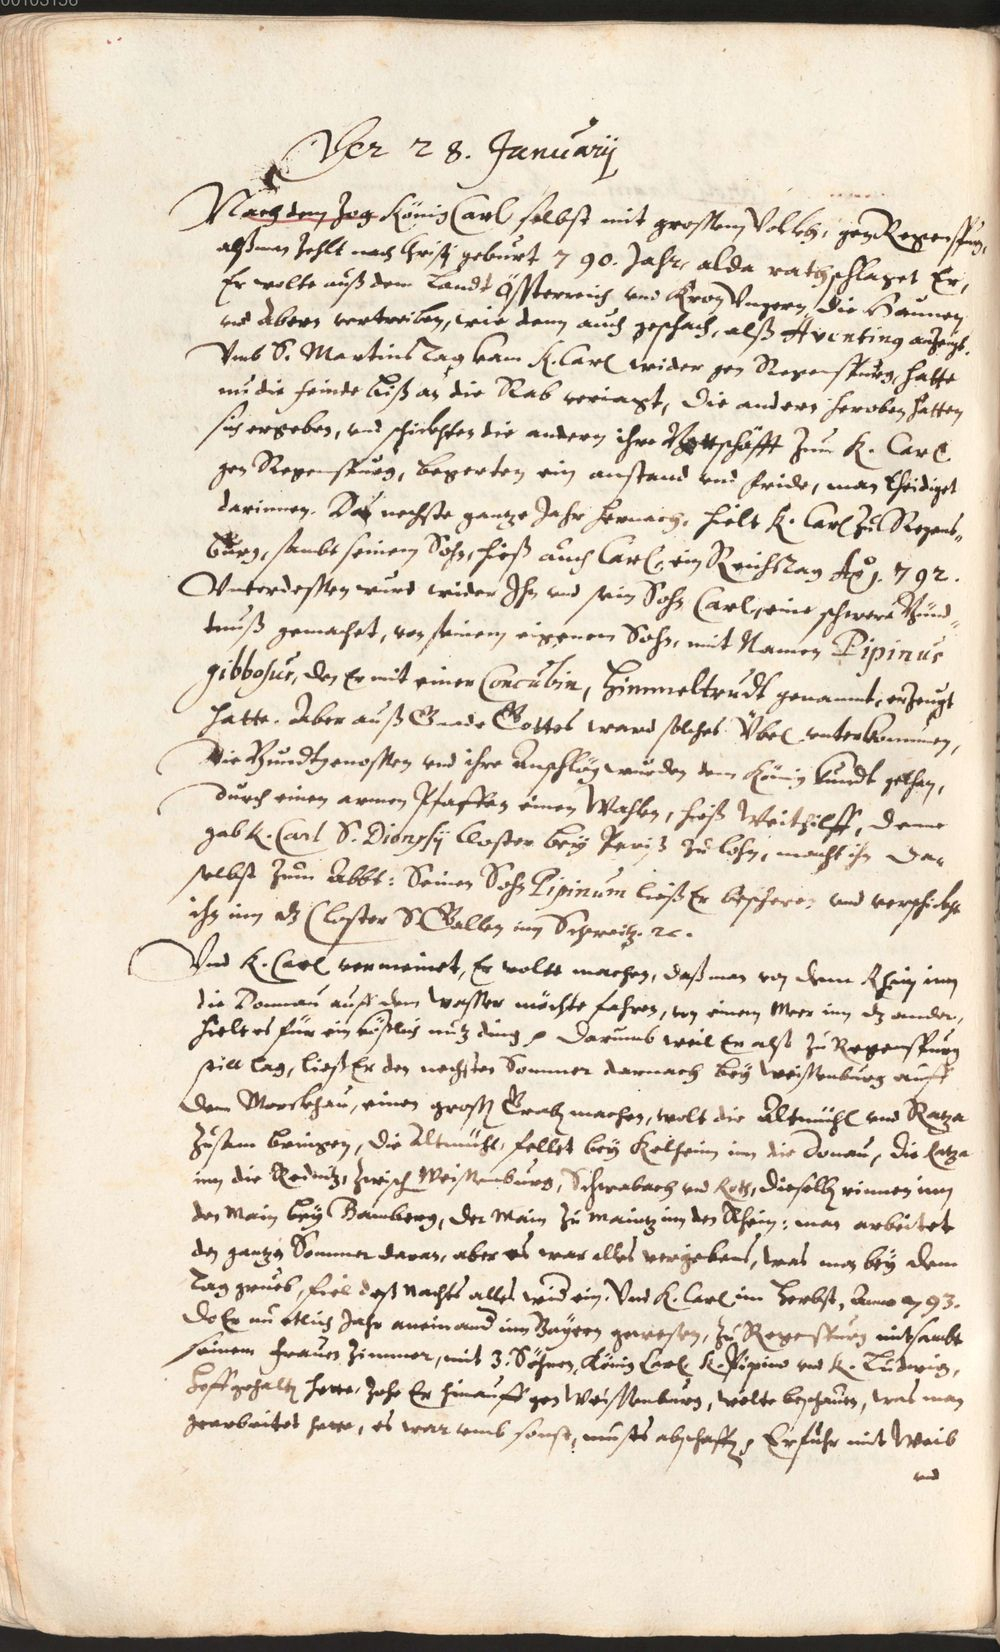 00103136
Der 28. Januarÿ
Nachdem zog König Carl selbst mit grossem Volckh, gen Regenspurg,
alß man zehlt nach Christj geburt 790. Jahr, alda rathschlaget Er,
Er wolte auß dem Landt Össterreich vnd Kron Vngern, die Haunen
vnd Abern vertreiben, wie dann auch geschach, alß Aventinus anzeigt.
Vmb S. Martins Tag kam K. Carl wider gen Regenspurg, hatte
nu die feinde biß an die Rab veriagt, die andern heroben hatten
sich ergeben, vnd schickhten die andern ihre Bottschafft zum K. Carl
gen Regenspurg, begerten ein anstand vnd fride, man theidiget
darinnen. Das nechste gantze Jahr hernach, hielt K. Carl zu Regens„
burg, sambt seinem Sohn, hieß auch Carl, ein Reichstag Ao 792.
Vnterdessen ward wider Ihn vnd sein Sohn Carl, eine schwere Bünd„
tnuß gemachet, von seinem eigenem Sohn, mit Namen Pipinus
gibbosus, den Er mit einer Concubin, Himmeltrudt genannt, erzeugt
hatte. Aber auß Gnade Gottes ward solches Übel vnterkommen,
Die Bundtgenossen vnd ihre Anschläg wurden dem König kundt gethan,
durch einen armen Pfaffen einen Wahlen, hieß Weithilff, deme
gab K. Carl S. Dionysij Closter bey Pariß zu lohn, macht ihn da„
selbst zum Abbt: Seinen Sohn Pipinum ließ Er bescheren vnd verschickht
ihn inn dz Closter S. Gallen inn Schweitz. ꝛc.
Vnd K. Carl vermeinet, Er wolte machen, daß man von dem Rhein inn
die Donnau auff dem wasser möchte fahren, von einem Meer inn dz ander,
hielt es für ein köstlich nutz ding, Darumb weil Er alß zu Regenspurg
still lag, ließ Er den nechsten Sommer darnach bey Weissenburg auff
dem Nordkhau, einen grossen Grabn machen, wolt die Altmühl vnd Ratza
zusam bringen, die Altmühl, fellet bey Kelheim inn die Donau, die Ratza
inn die Rednitz, zwisch Weissenburg, Schwabach vnd Roth, dieselb rinnen inn
den Main bey Bamberg, der Main zu Maintz inn den Rhein: man arbeitet
den gantzen Sommer daran, aber es war alles vergebens, was man bey dem
Tag grueb, fiel deß Nachts alles wider ein. Vnd K. Carl im Herbst, Anno 793.
Do Er nu etlich Jahr aneinander inn Bayern gewesen, zu Regenspurg mitsambt
seinem Frauen Zimmer, mit 3. Söhnen, König Carl, K. Pipino vnd K. Ludwig,
Hoff gehaltn hette, zohe Er hinauff gen Weissenburg, wolte beschauen, was man
gearbeitet hette, es war vmb sonst, musts abschaffen, Er fuhr mit Weib
vnd